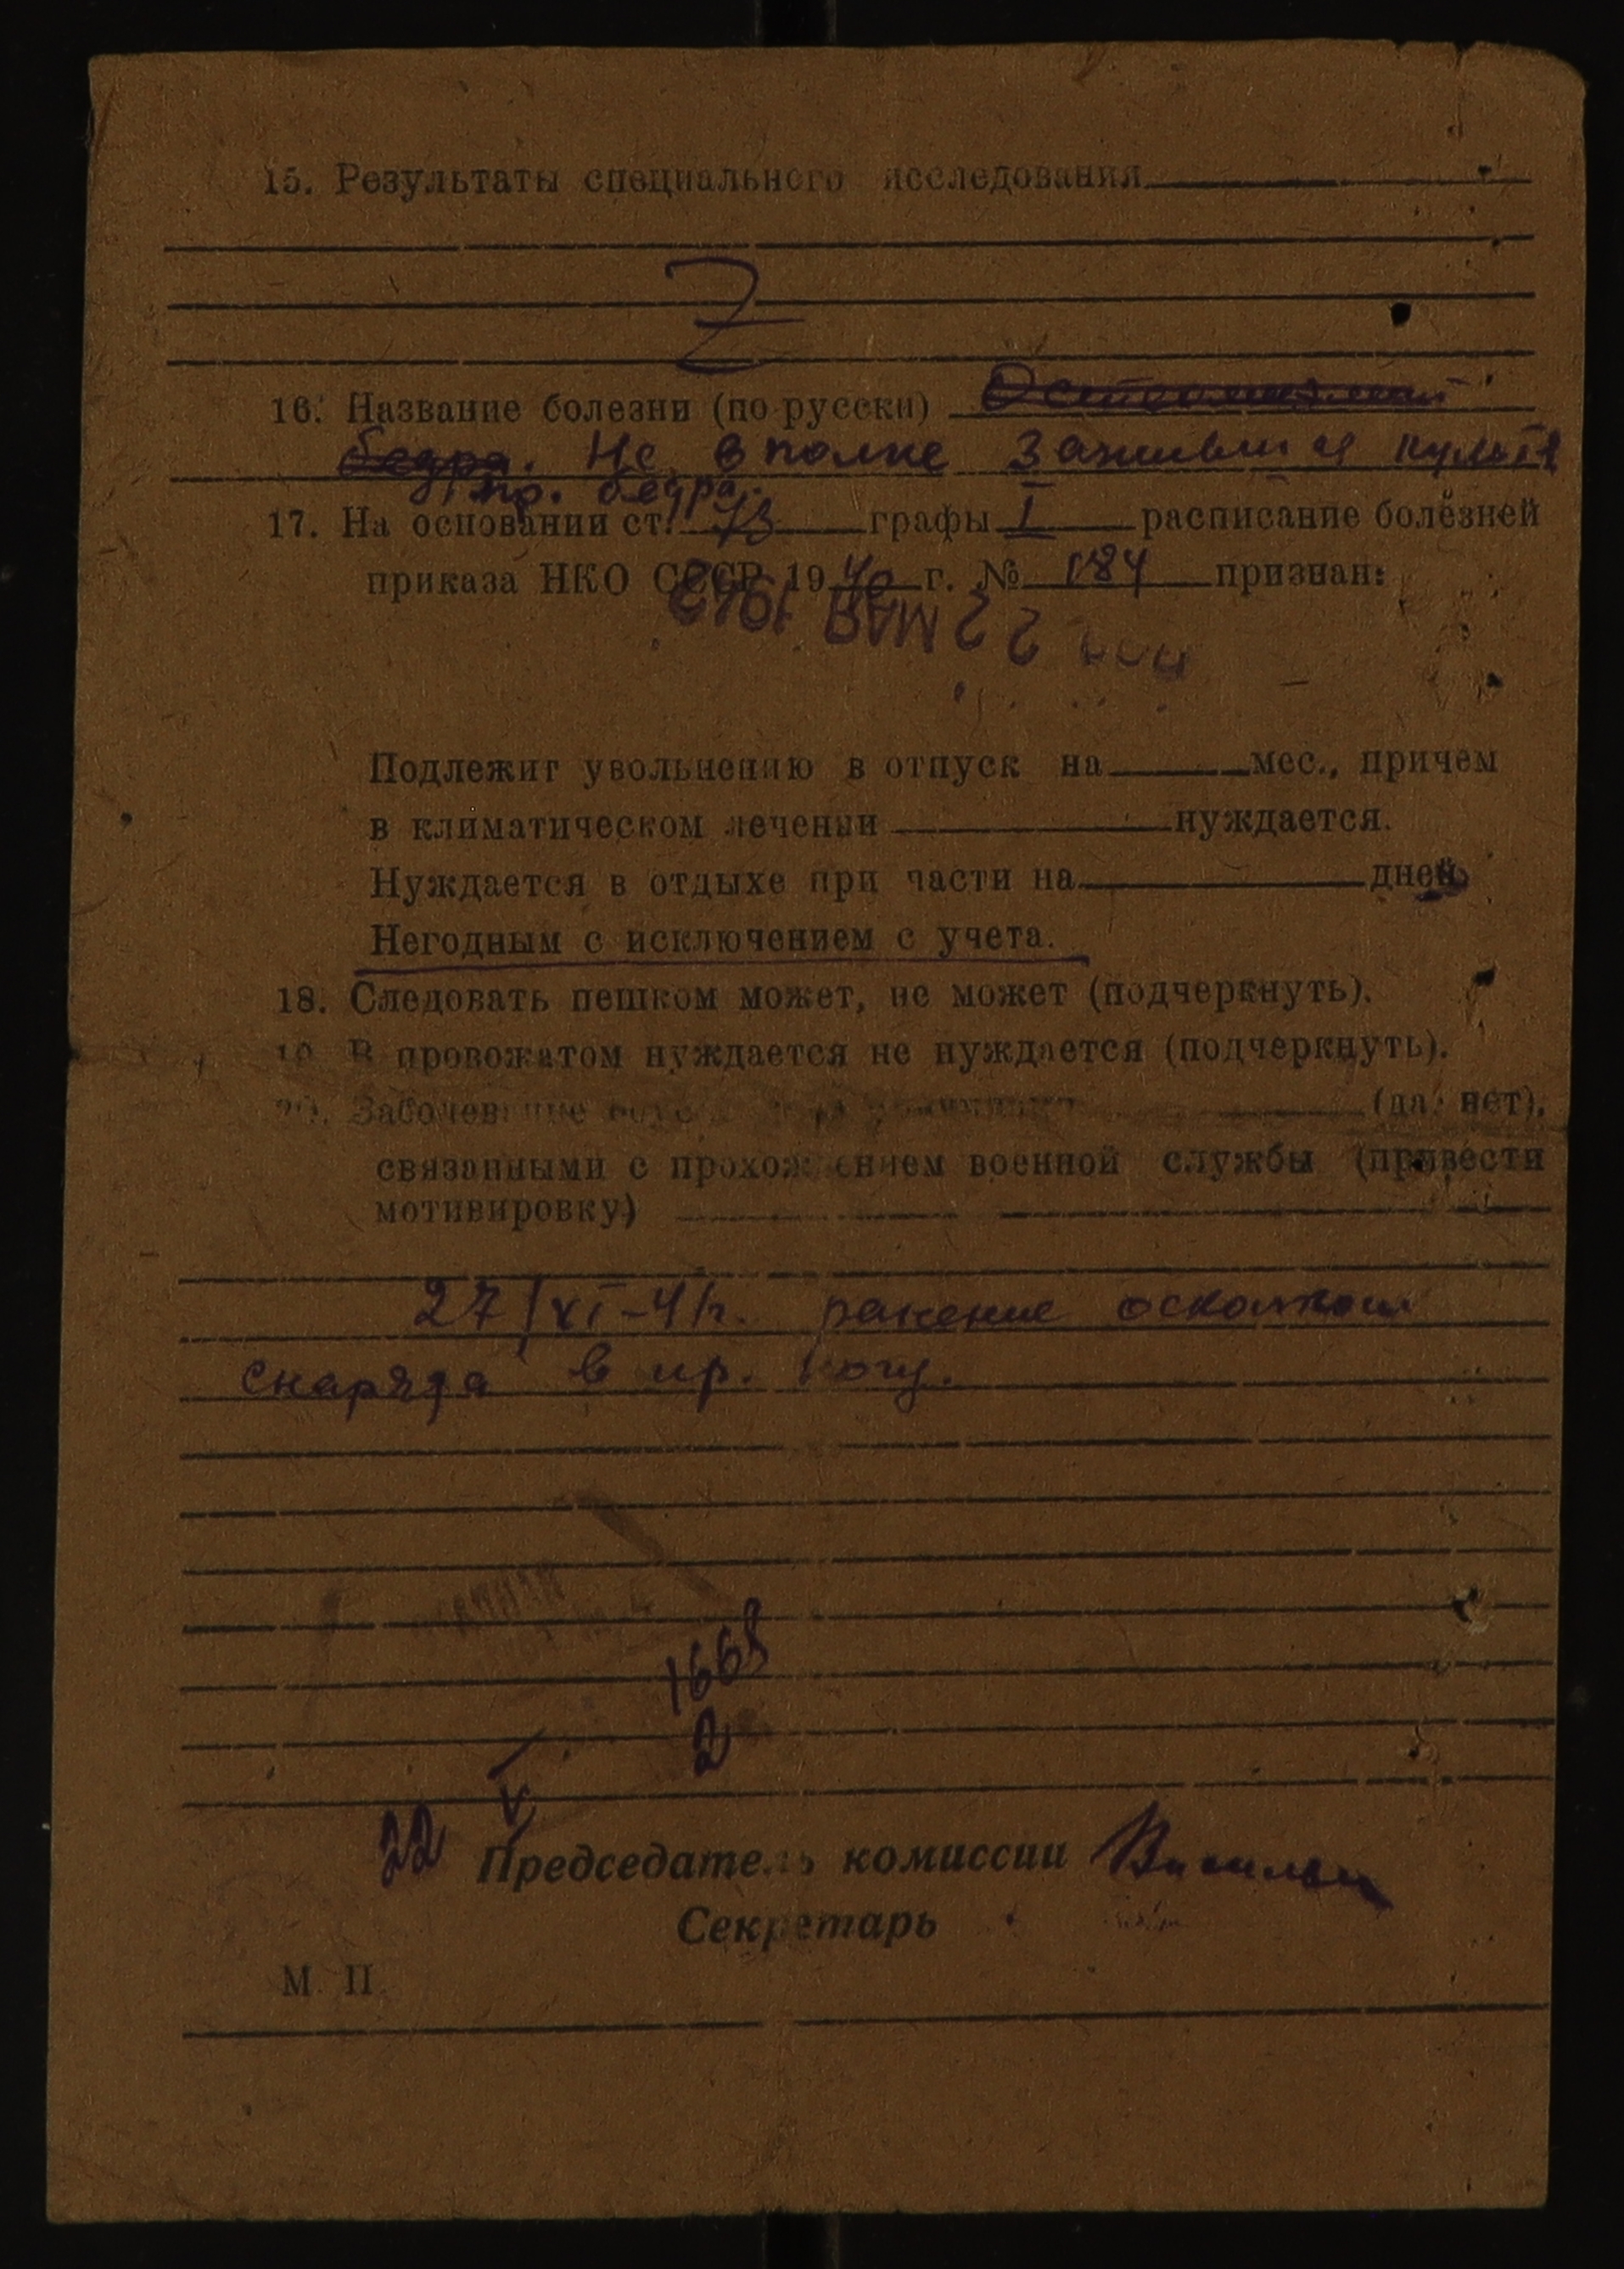 15. Результаты специального исследования
Z
16. Название болезни (по русски) Остеомиэлит
бедра. Не вполне зажившая культя
пр. бедра.
17. На основании ст. 73 графы I расписание болезней
приказа НКО СССР 1940 г. № 184 признан:
22 МАЯ 1942
Подлежит увольнению в отпуск на мес., причем
в климатическом лечении нуждается.
Нуждается в отдыхе при части на дней.
Негодным с исключением с учета.
18. Следовать пешком может, не может (подчеркнуть).
19. В провожатом нуждается не нуждается (подчеркнуть).
20. Заболевание (да, нет),
связанными с прохождением военной службы (привести
мотивировку)
27/XI-41г. ранение осколком
снаряда в пр. ногу.
1668
2
22 V
Председатель комиссии
Секретарь
М. П.